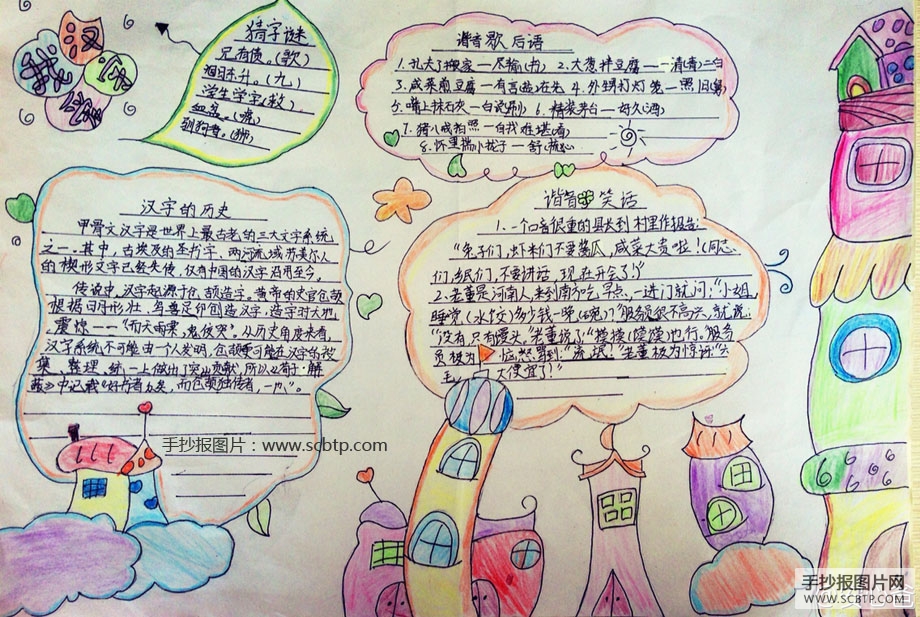 我
汉
猜字谜
兄有债。(歌)
旭日东升。(九)
学生学字(教)。
到狗者。(狮)
谐音歇后语
1.孔夫子搬家—尽输(书) 2.大葱拌豆腐—一清(青)二白
3.咸菜煎豆腐—有言(盐)在先 4.外甥打灯笼—照旧(舅)
5.嘴上抹石灰—白说(刷) 6.精装茅台—好久(酒)
7.猪八戒拍照—自找难堪(看)
8.怀里揣小拢子—舒(梳)心
汉字的历史
甲骨文汉字是世界上最古老的三大文字系统
之一.其中,古埃及的圣书字、两河流域苏美尔人
的楔形文字已经失传,仅有中国的汉字沿用至今。
传说中,汉字起源于仓颉造字。黄帝的史官仓颉
根据日月形壮、鸟兽足印创造汉字,造字时天地
震惊——“而天雨粟,鬼夜哭”。从历史角度来看,
汉字系统不可能由一个人发明,仓颉更可能在汉字的收
集、整理、统一上做出了突出贡献,所以《荀子·解
蔽》中记载“好书者众矣,而仓颉独传者,一也”。
谐音笑话
1.一个口音很重的县长到村里作报告:
“兔子们,虾米们不要酱瓜,咸菜太贵啦!(同志
们,乡民们,不要讲话,现在开会了!)”
2.老董是河南人,来到南方吃早点,一进门就问:“小姐,
睡觉(水饺)多少钱一晚(碗)?”服务员很不高兴,就说:
“没有,只有馒头。”老董说了:“摸摸(馍馍)也行。”服务
员极为恼怒,骂到:“流氓!”老董极为惊讶:“六
毛 太便宜了!”
手抄报图片:www.scbtp.com
手抄报图片网
WWW.SCBTP.COM